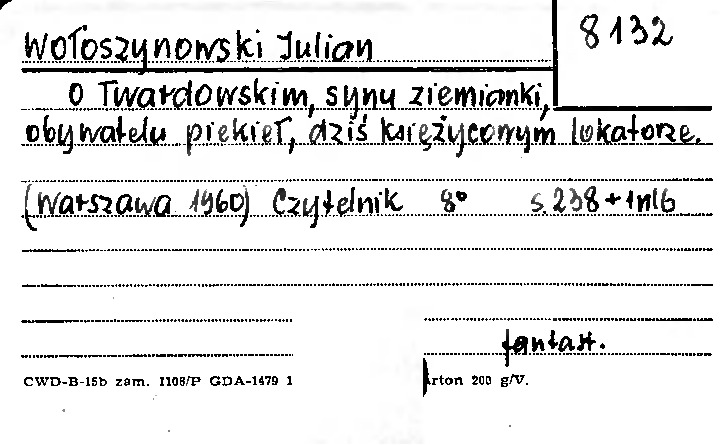 Wołoszynowski Julian
8132
O Twardowskim, synu ziemianki,
obywatelu piekieł, dziś księżycowym lokatorze.
(Warszawa 1960) Czytelnik 8° s. 238 + 1nlb
fantast.
CWD-B-15b zam. I108/P GDA-1479 1
arton 200 g/V.